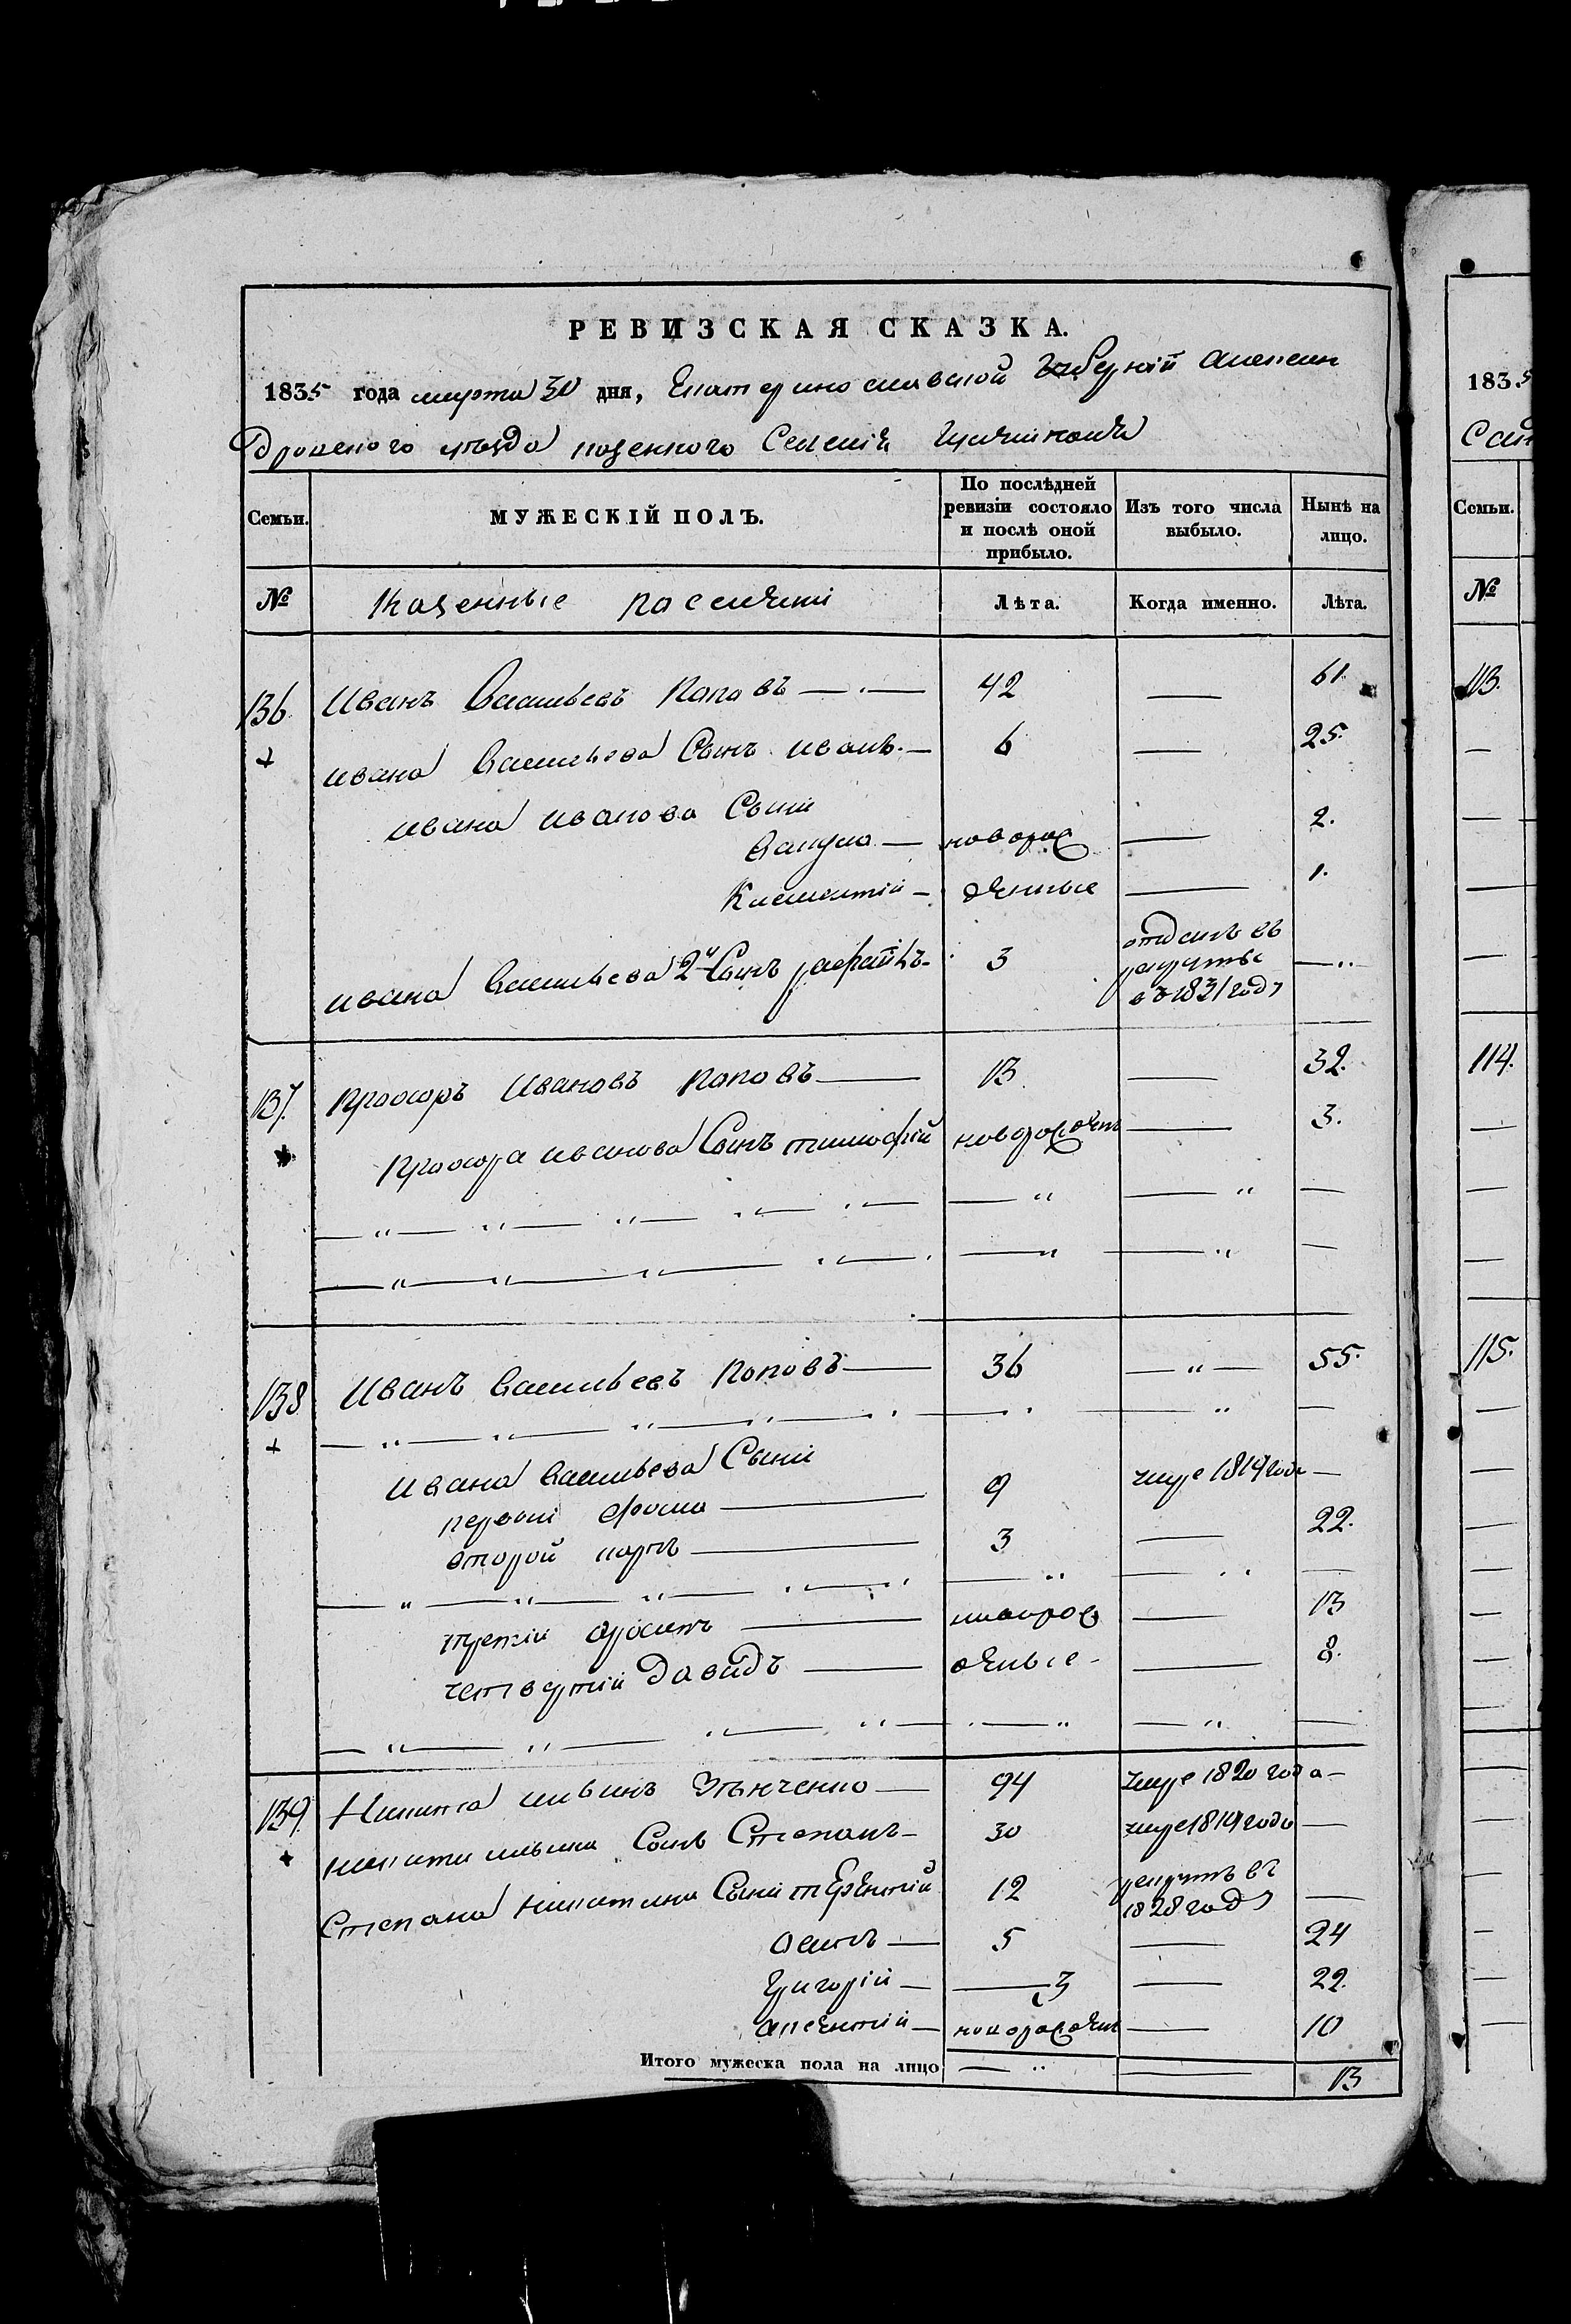 РЕВИЗСКАЯ СКАЗКА.
1835 года марта 30 дня, Екатеринославской губерній Алексан
дровского уезда казенного Селенія
Семьи.
МУЖЕСКІЙ ПОЛЪ.
По послѣдней ревизіи состояло и послѣ оной прибыло.
Изъ того числа выбыло.
Нынѣ на лицо.
№
Казенные поселяни
Лѣта.
Когда именно.
Лѣта.
136 Иванъ Васильевъ Поповъ — 42 — 61.
+ Ивана Васильева Сынъ Иванъ — 6 — 25.
Ивана Иванова Сыни
Вакула — новорож — 2.
Климентій — денные — 1.
Ивана Васильева 2й Сынъ — 3 отданъ въ рекруты въ 1831 году —
137. Прохоръ Ивановъ Поповъ — 13 — 32.
Прохора Иванова Сынъ тимофій новорожден — 3.
138 Иванъ Васильевъ Поповъ — 36 — 55.
+
Ивана Васильева Сыни
первый Фома — 9 умре 1819 года —
второй карпъ — 3 — 22.
третій — новорож — 13
четвертій Давидъ — денные — 8.
139. Никита — 94 умре 1820 года —
+ Никити Сынъ Степанъ — 30 умре 1819 года —
Степана Никитина Сыни терентій 12 рекрутъ въ 1828 году —
осипъ — 5 — 24
Григорій — 3 — 22.
авксентій — новорожден — 10
Итого мужеска пола на лицо — 13
1835
Семьи.
№
113.
114.
115.